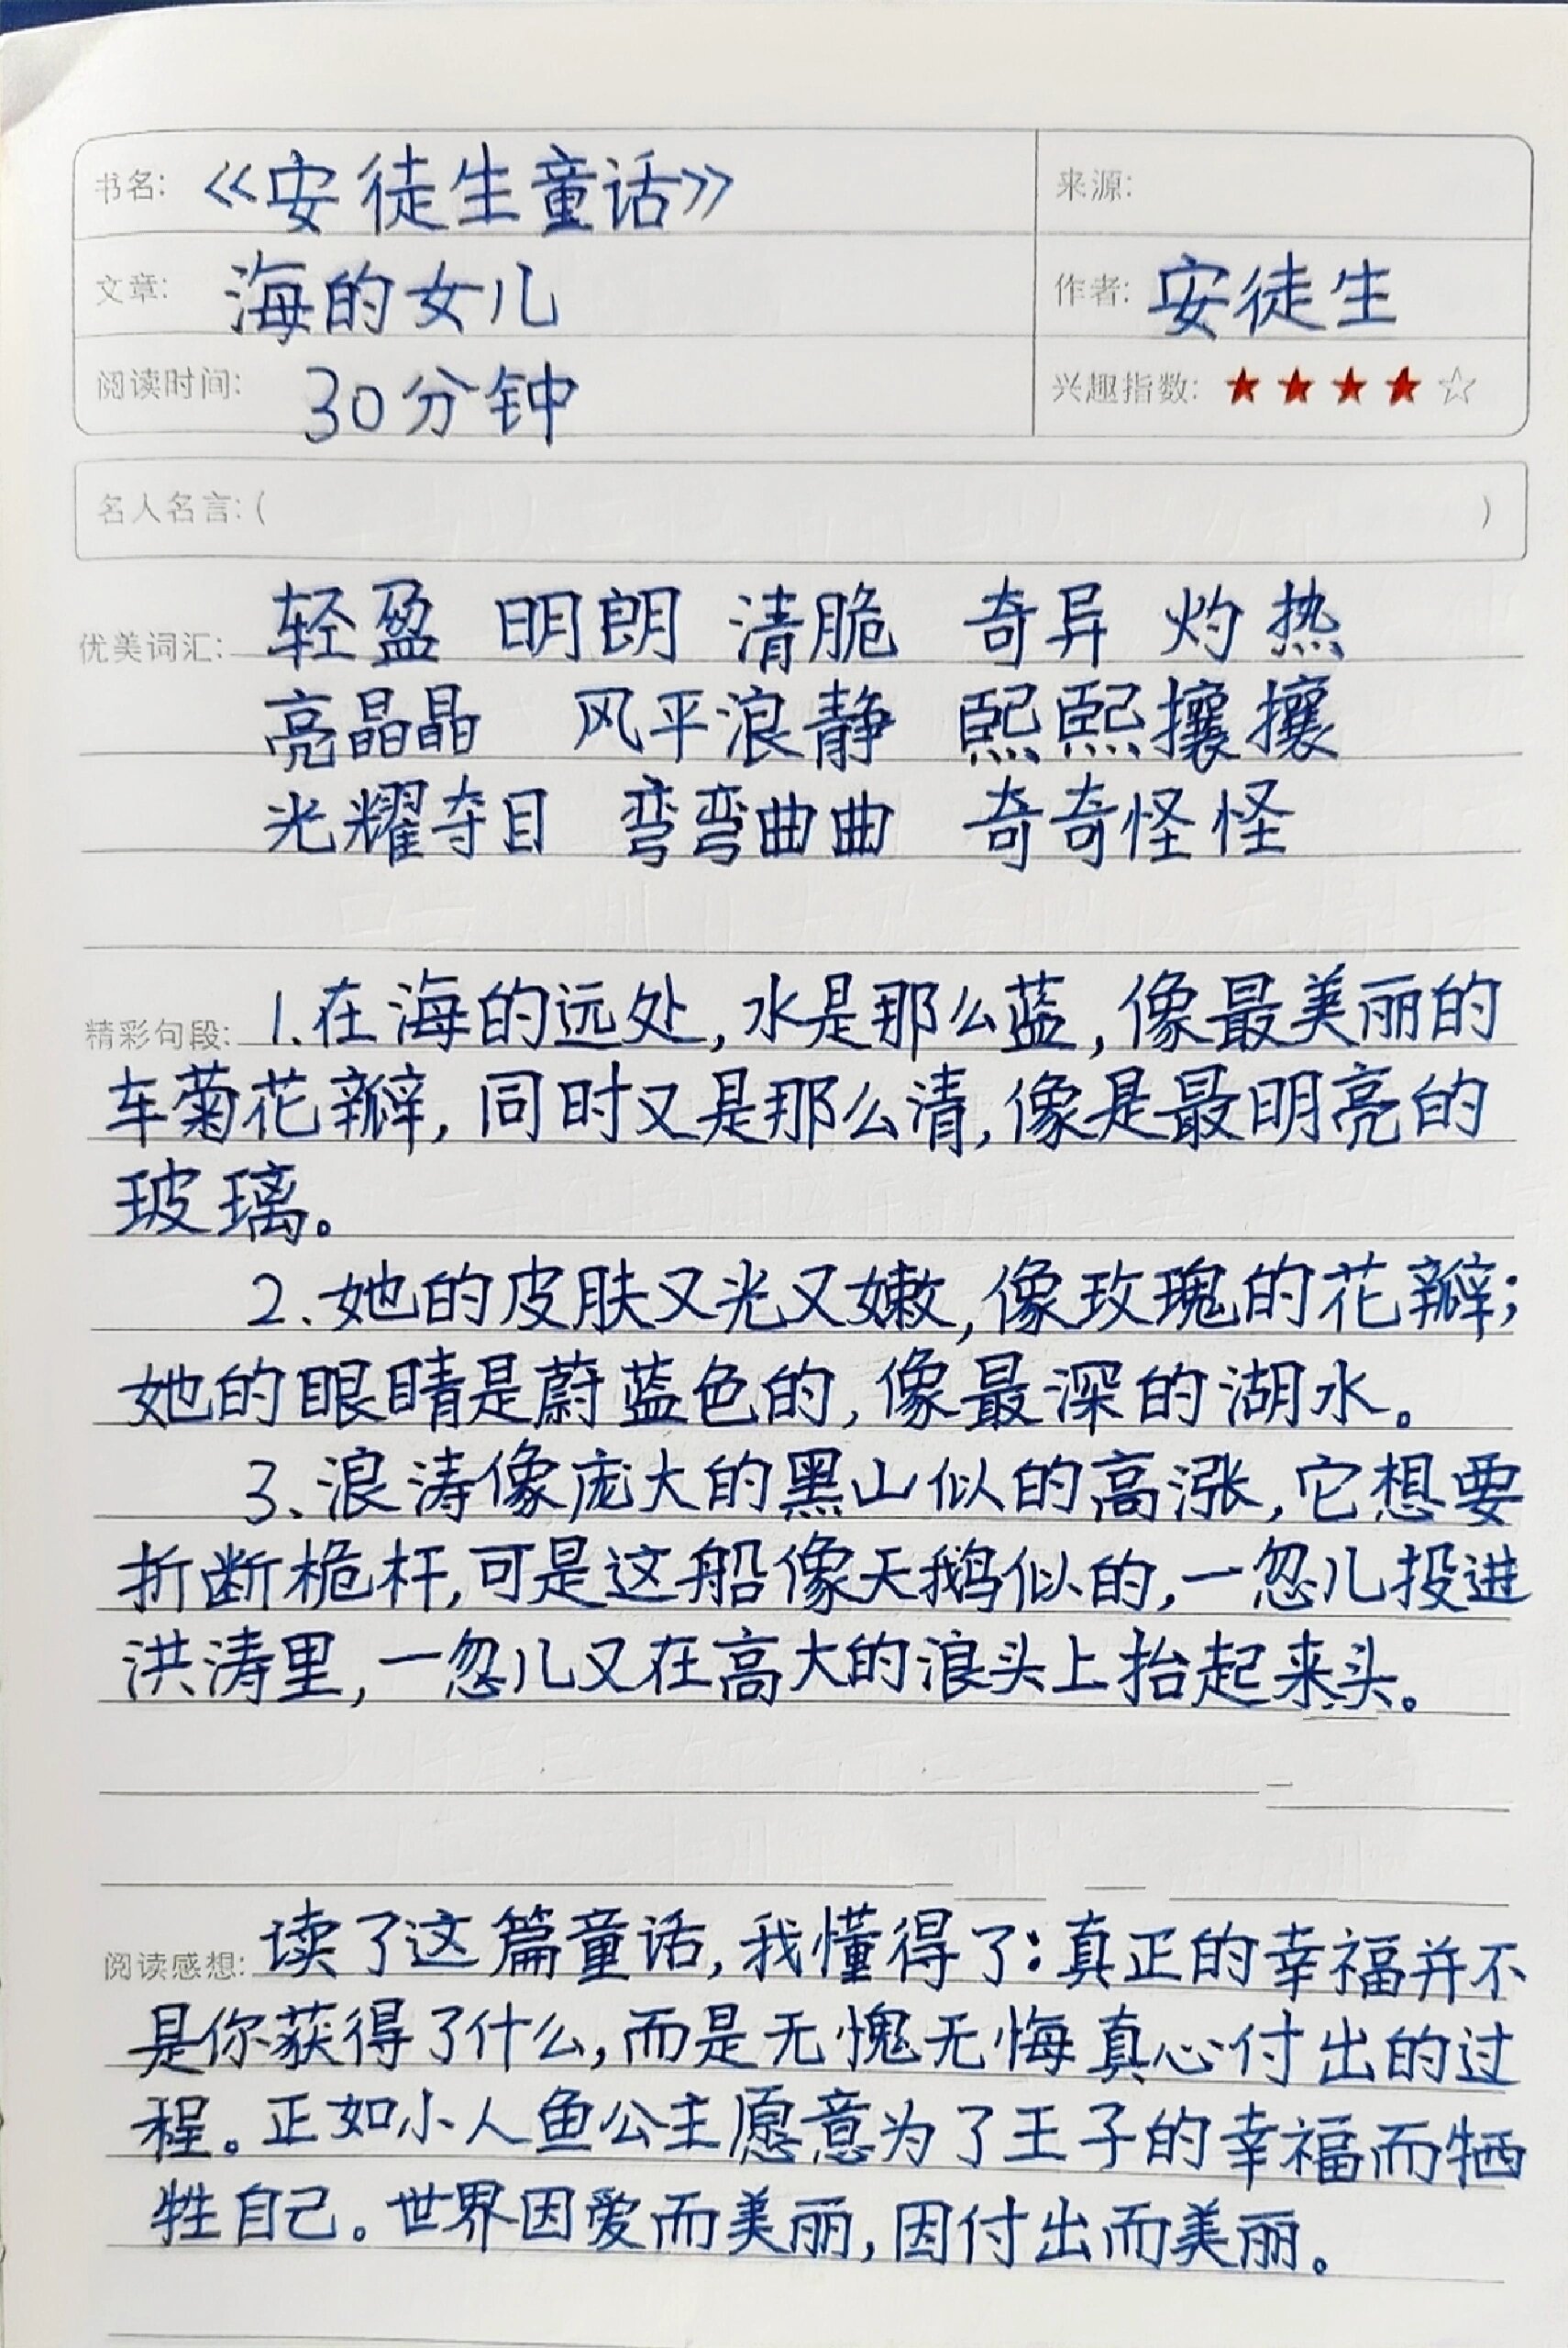 书名: 《安徒生童话》 来源:
文章: 海的女儿 作者: 安徒生
阅读时间: 30分钟 兴趣指数: ★★★★☆
名人名言: ( )
优美词汇: 轻盈 明朗 清脆 奇异 灼热
亮晶晶 风平浪静 熙熙攘攘
光耀夺目 弯弯曲曲 奇奇怪怪
精彩句段: 1.在海的远处,水是那么蓝,像最美丽的
车菊花瓣,同时又是那么清,像是最明亮的
玻璃。
2、她的皮肤又光又嫩,像玫瑰的花瓣;
她的眼睛是蔚蓝色的,像最深的湖水。
3、浪涛像庞大的黑山似的高涨,它想要
折断桅杆,可是这船像天鹅似的,一忽儿投进
洪涛里,一忽儿又在高大的浪头上抬起来头。
阅读感想: 读了这篇童话,我懂得了:真正的幸福并不
是你获得了什么,而是无愧无悔真心付出的过
程。正如小人鱼公主愿意为了王子的幸福而牺
牲自己。世界因爱而美丽,因付出而美丽。